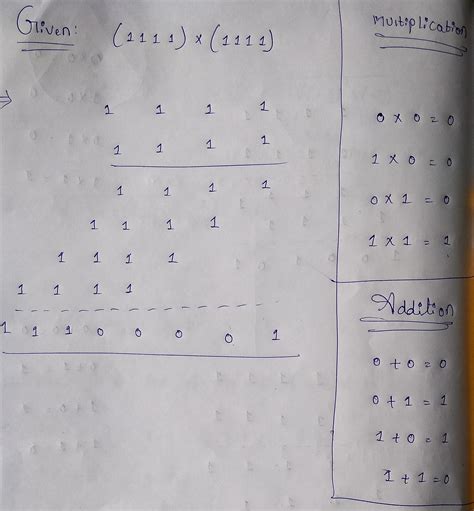 Given: (1 1 1 1) x (1 1 1 1)
⇒
1 1 1 1
1 1 1 1
1 1 1 1
1 1 1 1
1 1 1 1
1 1 1 1
1 1 1 0 0 0 0 1
Multiplication
0 x 0 = 0
1 x 0 = 0
0 x 1 = 0
1 x 1 = 1
Addition
0 + 0 = 0
0 + 1 = 1
1 + 0 = 1
1 + 1 = 0